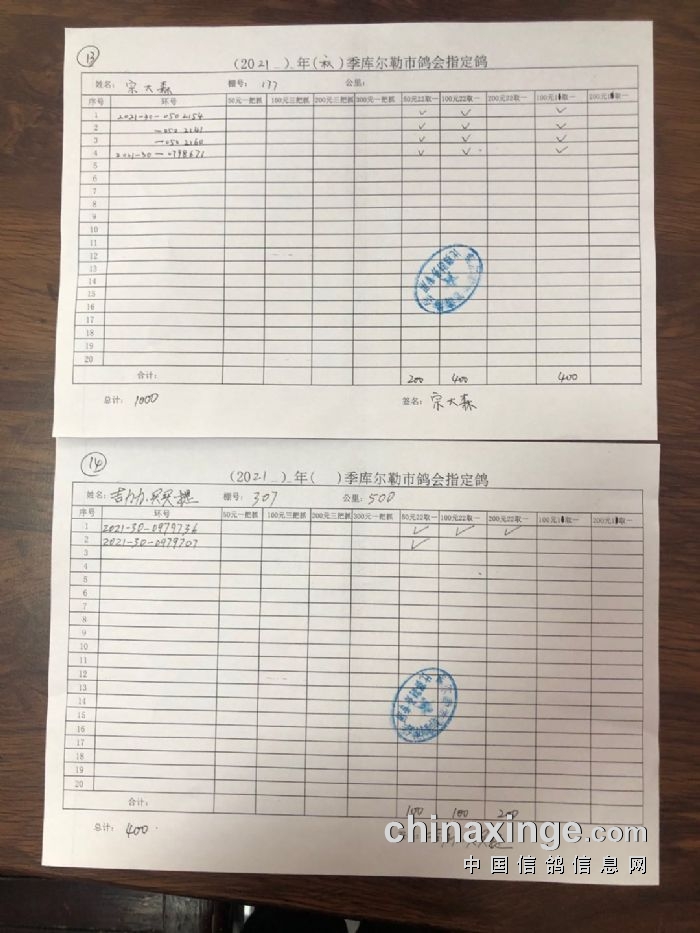 13
(2021 _)_年(秋)季库尔勒市鸽会指定鸽
姓名: 宗大森 棚号: 177 公里:
序号 环号 50元一把抓 100元三把抓 200元三把抓 300元一把抓 50元22取一 100元22取一 200元22取一 100元1取一 200元1取一
1 2021-30-0502154 ✓ ✓ ✓
2 -0502141 ✓ ✓ ✓
3 -0502160 ✓ ✓ ✓
4 2021-30-0798671 ✓ ✓ ✓
5
6
7
8
9
10
11
12
13
14
15
16
17
18
19
20
合计: 200 400 400
总计: 1000 签名: 宗大森
14
(2021 _)_年( )季库尔勒市鸽会指定鸽
姓名: 吉力力.买买提 棚号: 307 公里: 500
序号 环号 50元一把抓 100元三把抓 200元三把抓 300元一把抓 50元22取一 100元22取一 200元22取一 100元1取一 200元1取一
1 2021-30-0979736 ✓ ✓ ✓
2 2021-30-0979707 ✓
3
4
5
6
7
8
9
10
11
12
13
14
15
16
17
18
19
20
合计: 100 100 200
总计: 400
chinaxinge.com
中国信鸽信息网